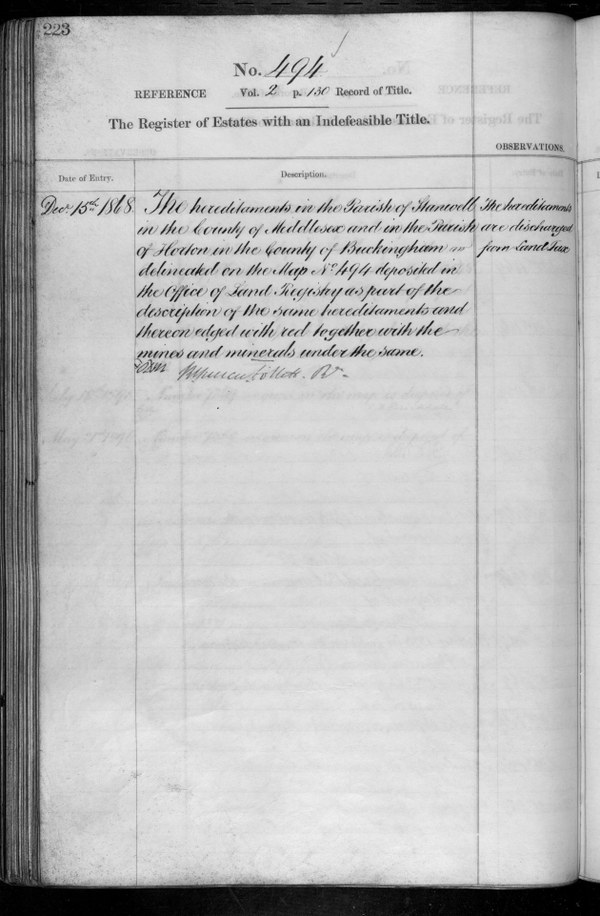 223
No. 494
REFERENCE Vol. 2 p. 130 Record of Title.
The Register of Estates with an Indefeasible Title.
OBSERVATIONS.
Date of Entry.
Description.
Decr. 15th 1868.
The hereditaments in the Parish of Stanwell
in the County of Middlesex and in the Parish
of Horton in the County of Buckingham as
delineated on the Map No. 494 deposited in
the Office of Land Registry as part of the
description of the same hereditaments and
thereon edged with red together with the
mines and minerals under the same.
The hereditaments
are discharged
from Land Tax